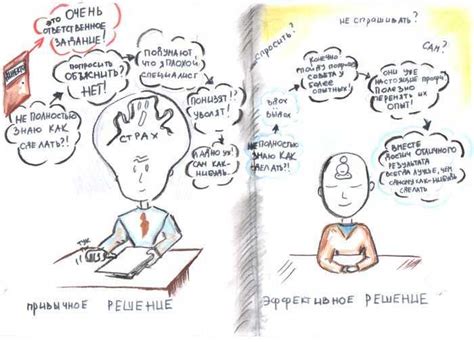 ДИРЕКТОР
ЭТО ОЧЕНЬ
ОТВЕТСТВЕННОЕ
ЗАДАНИЕ!
НЕ ПОЛНОСТЬЮ
ЗНАЮ КАК
СДЕЛАТЬ?!
ПОПРОСИТЬ
ОБЪЯСНИТЬ?
НЕТ!
ПОДУМАЮТ,
ЧТО Я ПЛОХОЙ
СПЕЦИАЛИСТ
ПОНИЗЯТ!?
УВОЛЯТ!
ЛАДНО УЖ!
САМ КАК-
НИБУДЬ
СТРАХ
ТУК
ПРИВЫЧНОЕ РЕШЕНИЕ
НЕ СПРАШИВАТЬ?
СПРОСИТЬ?
САМ?
НЕ ПОЛНОСТЬЮ
ЗНАЮ КАК
СДЕЛАТЬ?!
ВДОХ
ВЫДОХ
КОНЕЧНО
ПОЙДУ ПОПРОШУ
СОВЕТА У
БОЛЕЕ
ОПЫТНЫХ!
ОНИ УЖЕ
НАСТОЯЩИЕ ПРОФИ
ПОЛЕЗНО
ПЕРЕНЯТЬ ИХ
ОПЫТ!
ВМЕСТЕ
ОТЛИЧНОГО
РЕЗУЛЬТАТА
ВСЕГДА ЛУЧШЕ, ЧЕМ
САМОМУ КАК-НИБУДЬ
СДЕЛАТЬ
ЭФФЕКТИВНОЕ РЕШЕНИЕ